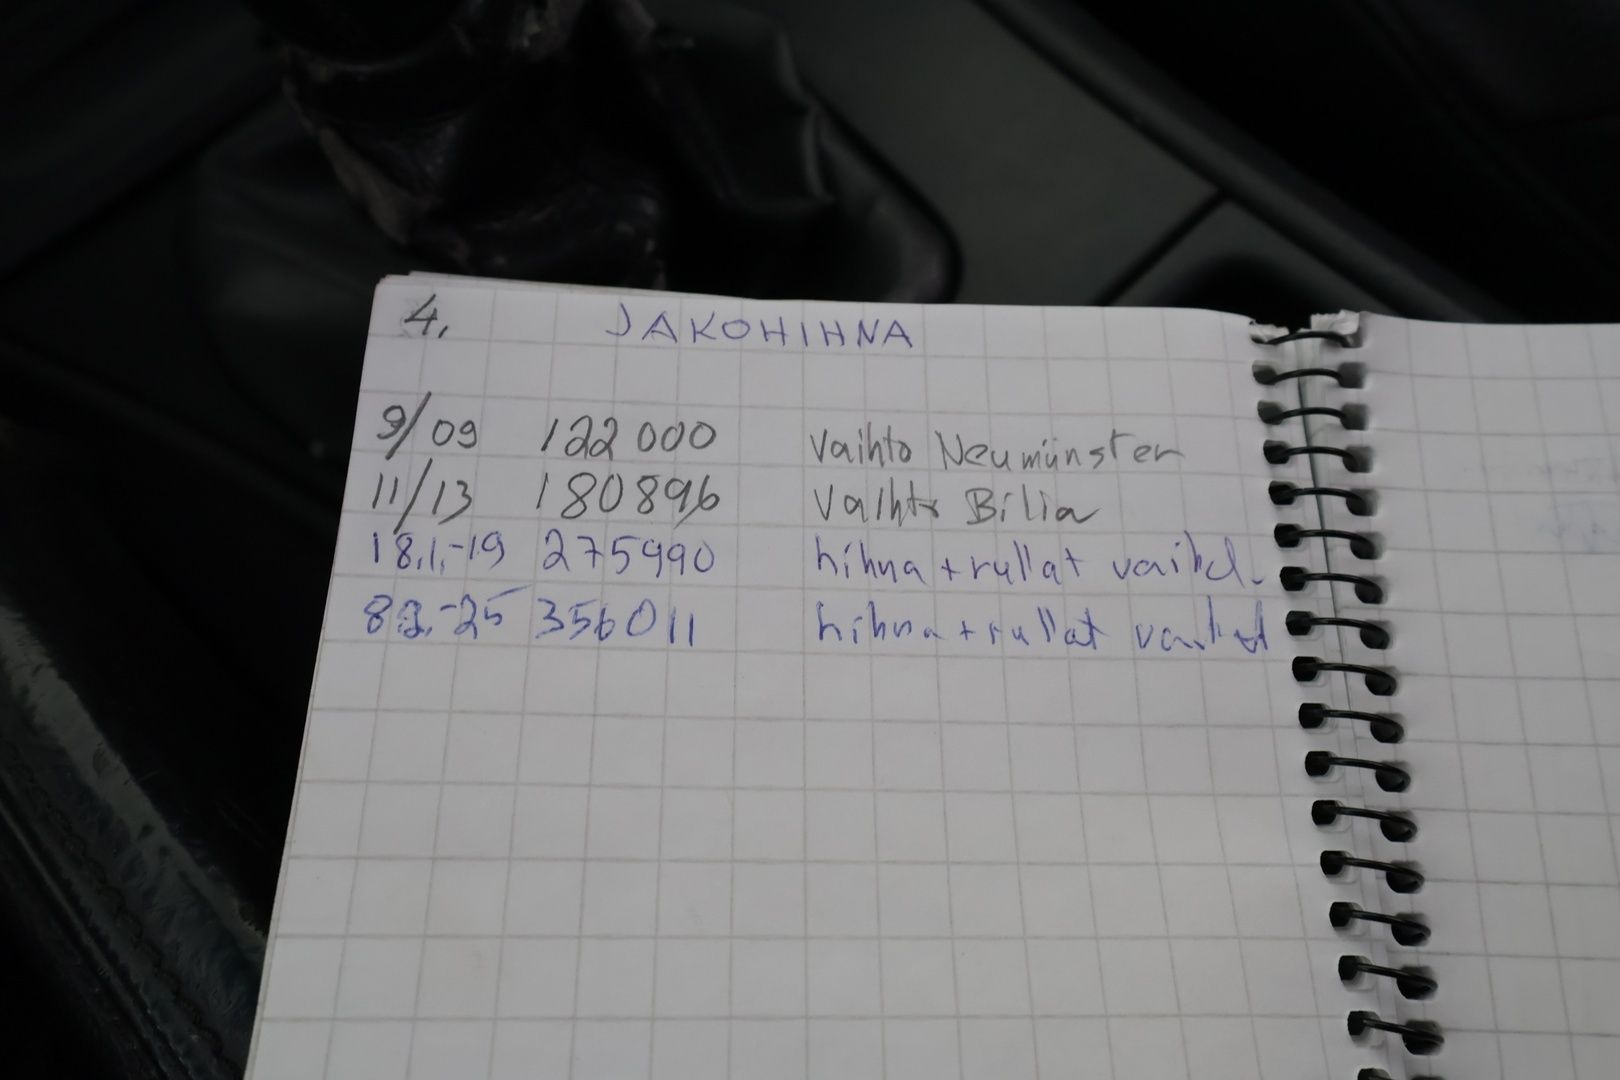 4. JAKOHIHNA
9/09 122 000 Vaihto Neumünster
11/13 180896 Vaihto Bilia
18.1.-19 275990 hihna + rullat vaihd.
8.2.-25 356011 hihna + rullat vaihd